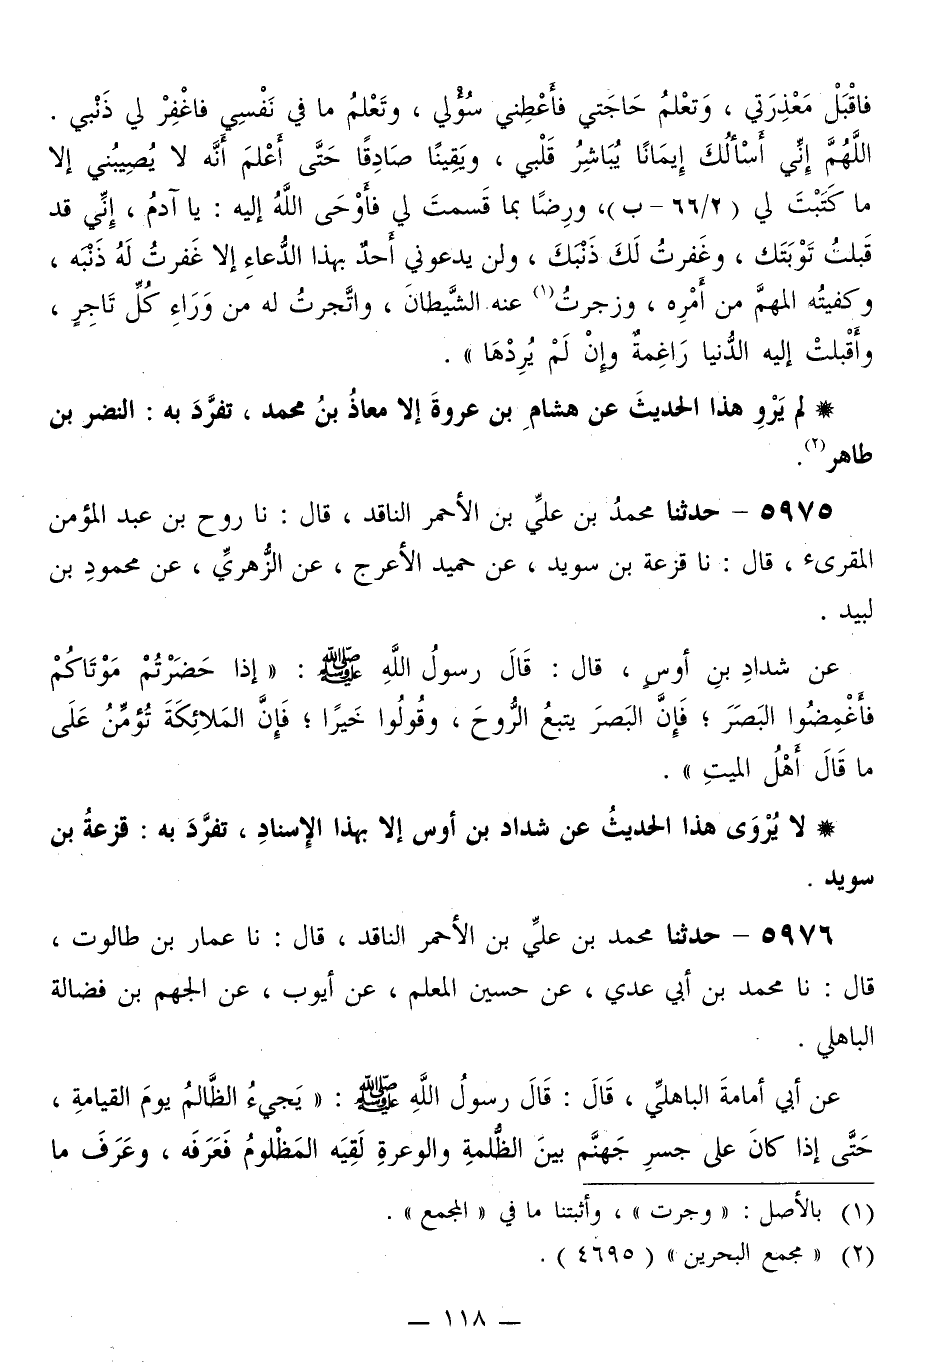 فاقْبَلْ مَعْذِرَتي ، وَتعْلمُ حَاجَتي فأَعْطِني سُؤْلي ، وتَعْلمُ ما في نَفْسِي فاغْفِرْ لي ذَنْبي .
اللَّهُمَّ إنِّي أَسْألُكَ إيمَانًا يُبَاشِرُ قَلْبي ، ويَقِينًا صَادِقًا حَتَّى أَعْلمَ أَنَّه لا يُصِيبُني إلا
ما كَتَبْتَ لي ( ٢/ ٦٦ - ب )، ورِضًا بما قَسمتَ لي فأَوْحَى اللَّهُ إليه : يا آدمُ ، إنِّي قد
قَبلتُ تَوْبَتَك ، وغَفرتُ لَكَ ذَنْبَكَ ، ولن يدعوني أَحدٌ بهذا الدُّعاءِ إلا غَفرتُ لَهُ ذَنْبَه ،
وكفيتُه المهمَّ من أَمْرِه ، وزجرتُ(١) عنه الشَّيطانَ ، واتَّجرتُ له من وَرَاءِ كُلِّ تَاجِرٍ ،
وأَقْبلتْ إليه الدُّنيا رَاغِمةٌ وإنْ لَمْ يُرِدْهَا » .
* لم يَرْوِ هذا الحديثَ عن هشامِ بن عروةَ إلا معاذُ بنُ محمد ، تفرَّدَ به : النضر بن
طاهر(٢).
٥٩٧٥ - حدثنا محمدُ بن عليِّ بن الأحمر الناقد ، قال : نا روح بن عبد المؤمن
المقرىء ، قال : نا قزعة بن سويد ، عن حميد الأعرج ، عن الزُّهريِّ ، عن محمودِ بن
لبيد .
عن شدادِ بنِ أوسٍ ، قال : قَالَ رسولُ اللَّهِ ﷺ : « إذا حَضَرْتُمْ مَوْتَاكُمْ
فأَغْمِضُوا البَصَرَ ؛ فَإنَّ البَصرَ يتبعُ الرُّوحَ ، وقُولُوا خَيرًا ؛ فَإنَّ المَلائِكَةَ تُؤمِّنُ عَلَى
ما قَالَ أَهْلُ الميتِ » .
* لا يُرْوَى هذا الحديثُ عن شداد بن أوس إلا بهذا الإسنادِ ، تفرَّدَ به : قزعةُ بن
سويد .
٥٩٧٦ - حدثنا محمد بن عليِّ بن الأحمر الناقد ، قال : نا عمار بن طالوت ،
قال : نا محمد بن أبي عدي ، عن حسين المعلم ، عن أيوب ، عن الجهم بن فضالة
الباهلي .
عن أبي أمامةَ الباهليِّ ، قَالَ : قَالَ رسولُ اللَّهِ ﷺ : « يَجيءُ الظَّالمُ يومَ القيامةِ ،
حَتَّى إذا كانَ على جسرِ جَهنَّم بينَ الظُّلمةِ والوعرةِ لَقِيَه المَظْلومُ فَعَرَفَه ، وعَرَفَ ما
(١) بالأصل : « وجرت » ، وأثبتنا ما في « المجمع » .
(٢) « مجمع البحرين » ( ٤٦٩٥ ) .
— ١١٨ —